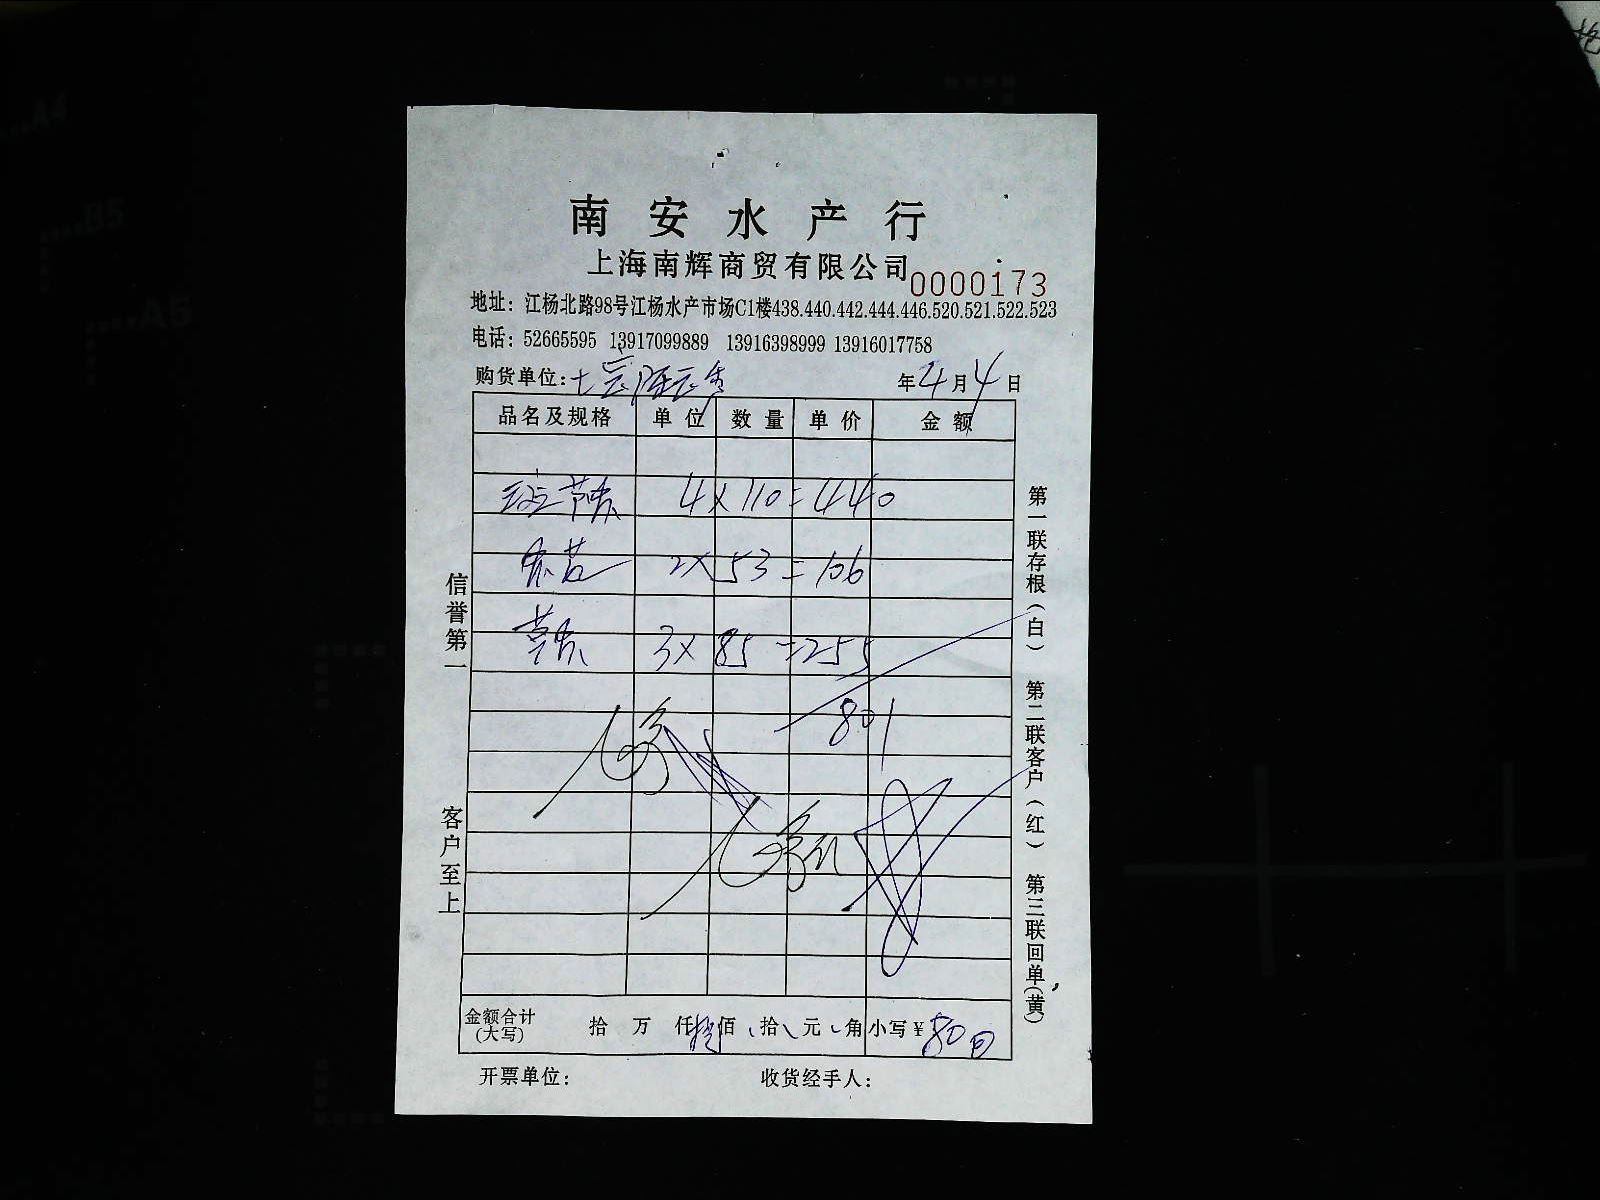 南安水产行
上海南辉商贸有限公司 0000173
地址：江杨北路98号江杨水产市场C1楼438.440.442.444.446.520.521.522.523
电话：52665595 13917099889 13916398999 13916017758
购货单位： 年4月4日
品名及规格 单位 数量 单价 金额
4×110=440
2×53=106
3×85=255
801
金额合计(大写) 拾 万 仟捌佰 拾 元 角 小写¥800
开票单位： 收货经手人：
信誉第一 客户至上
第一联存根(白) 第二联客户(红) 第三联回单(黄)